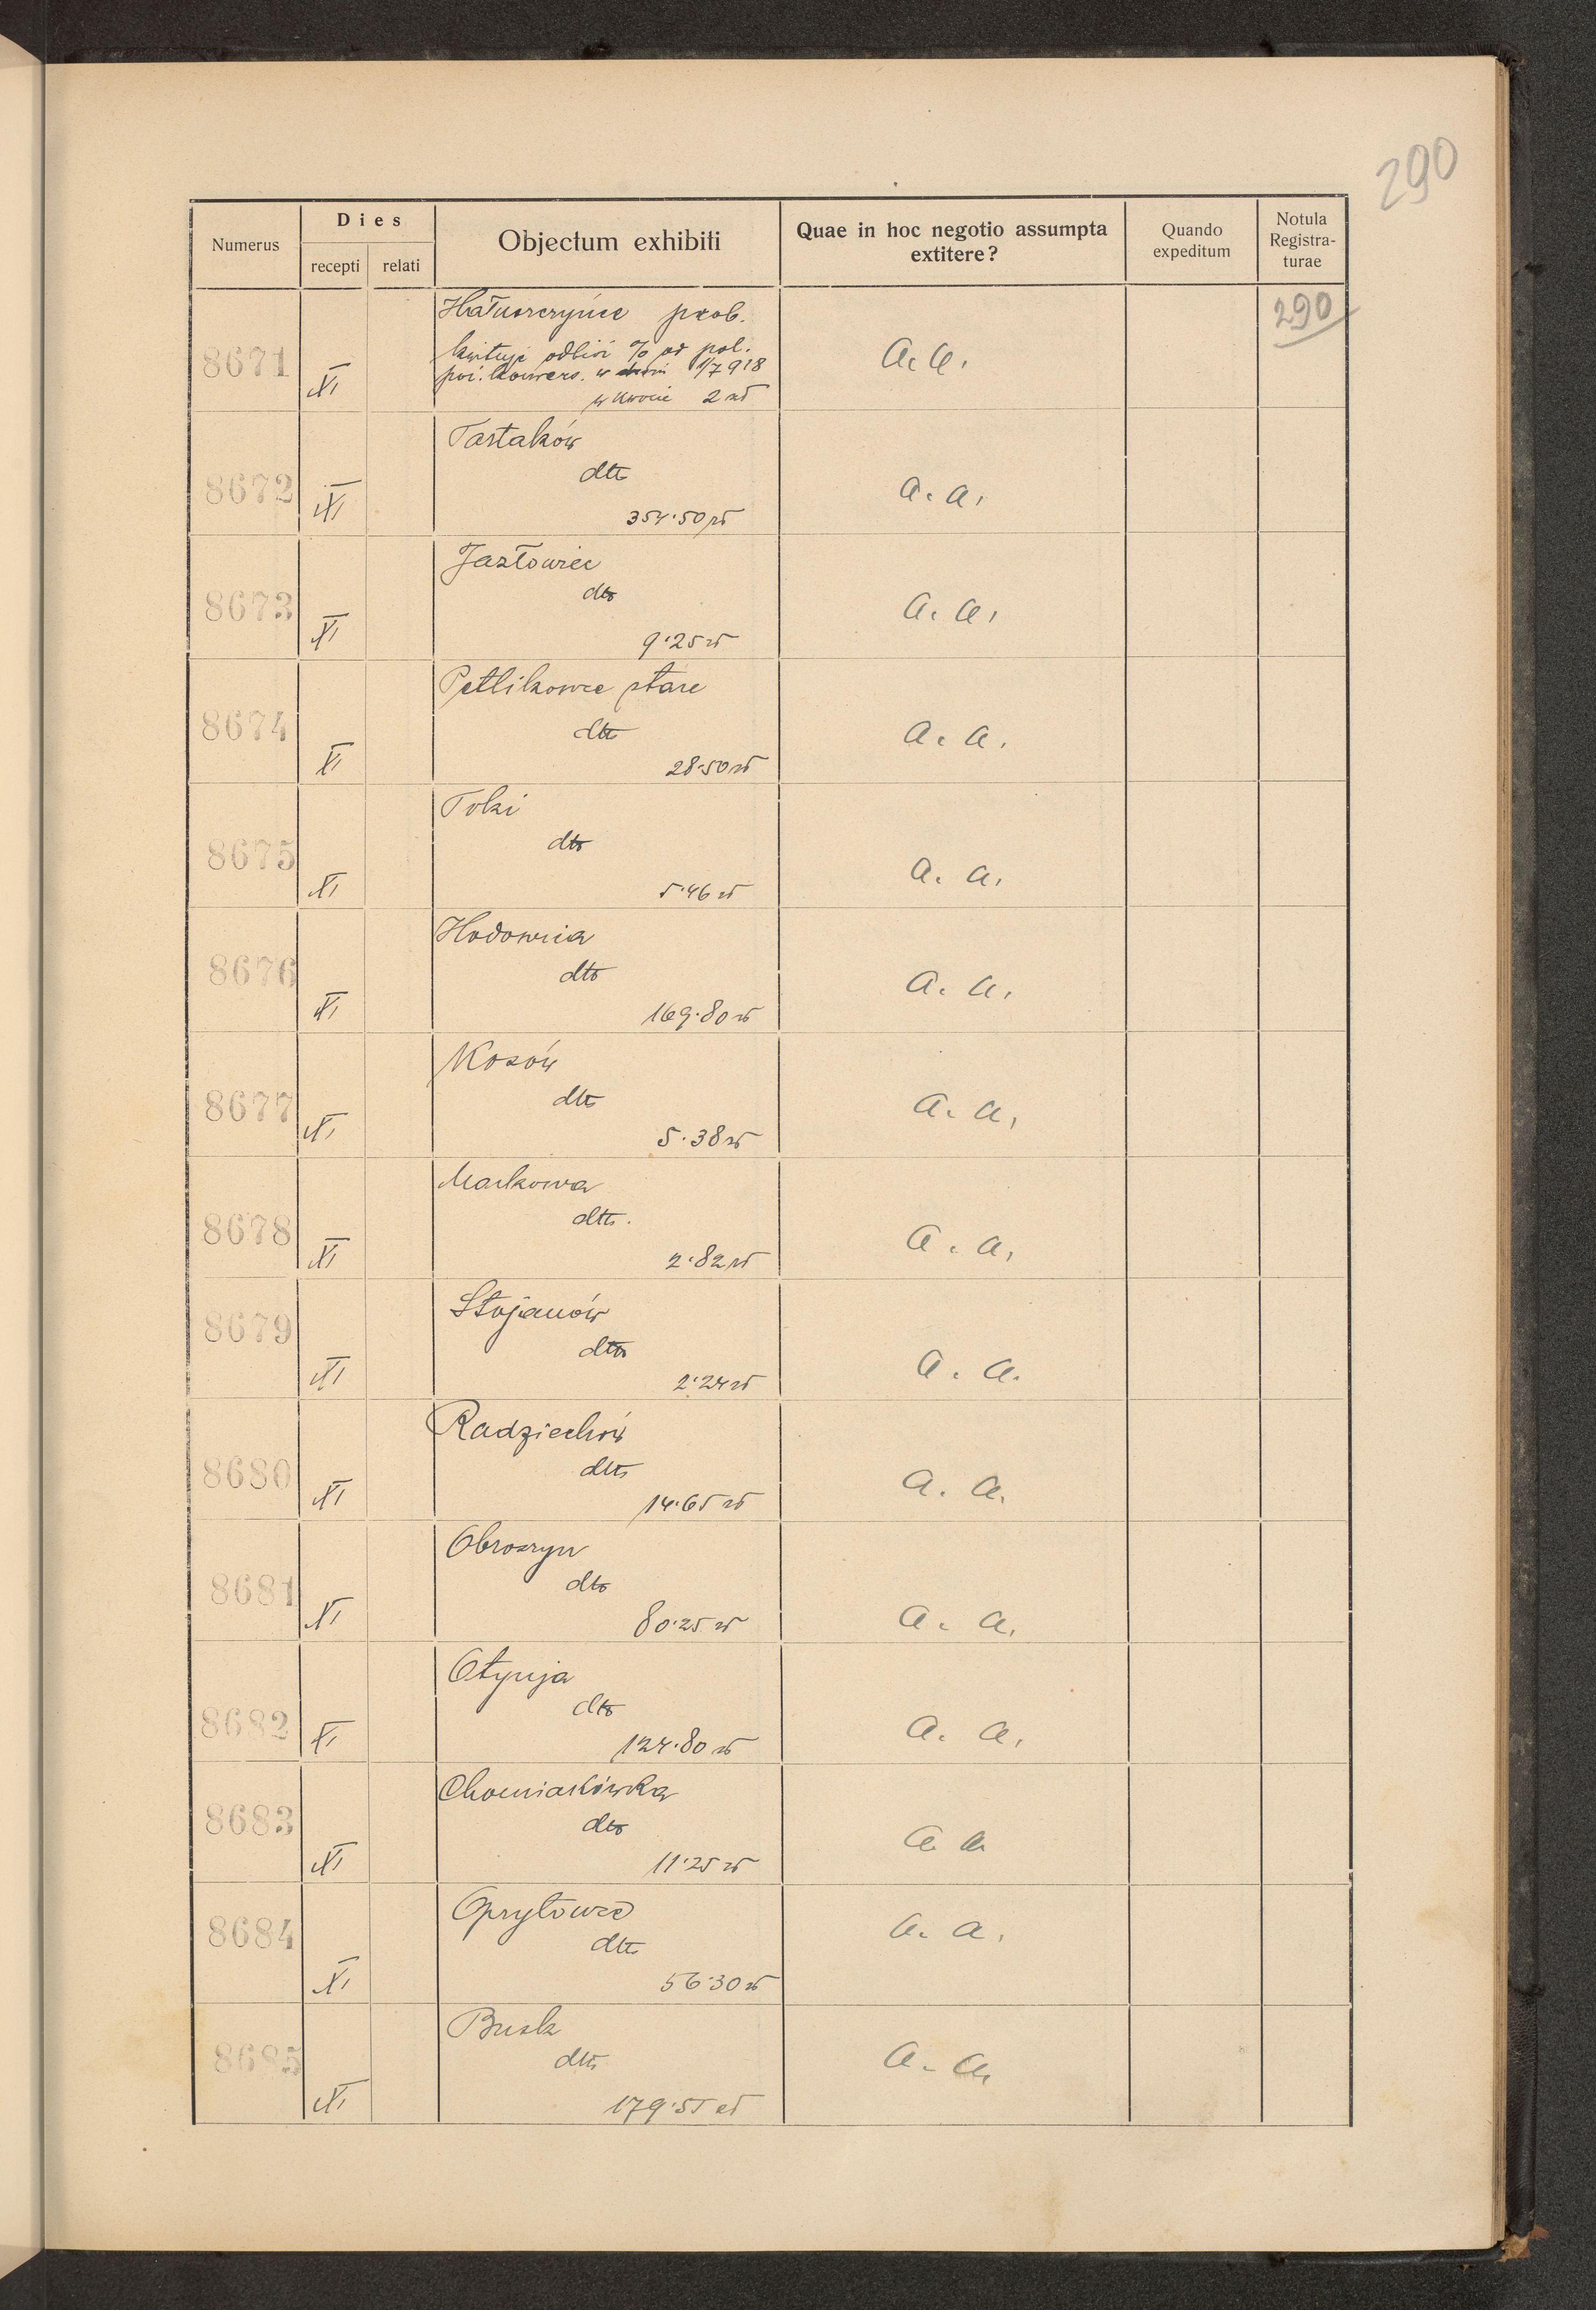 290
Numerus
Dies
recepti
relati
Objectum exhibiti
Quae in hoc negotio assumpta
extitere?
Quando
expeditum
Notula
Registra-
turae
290
8671
XI
Hałuszczyńce prob.
kwituje odbiór % od pol.
poż. konwers. w 1/7 918
w kwocie 2 zł
a. a.
8672
XI
Tartaków
dto
354·50 zł
a. a.
8673
XI
Jazłowiec
dto
9·25 zł
a. a.
8674
XI
Petlikowce stare
dto
28·50 zł
a. a.
8675
XI
Toki
dto
5·46 zł
a. a.
8676
XI
Hodowica
dto
169·80 zł
a. a.
8677
XI
Kozów
dto
5·38 zł
a. a.
8678
XI
Markowa
dto.
2·82 zł
a. a.
8679
XI
Stojanów
dto
2·24 zł
a. a.
8680
XI
Radziechów
dto
14·65 zł
a. a.
8681
XI
Obroszyn
dto
80·25 zł
a. a.
8682
XI
Otynja
dto
124·80 zł
a. a.
8683
XI
Chomiakówka
dto
11·25 zł
a a
8684
XI
Opryłowce
dto
56·30 zł
a. a.
8685
XI
Busk
dto
179·55 zł
a. a.